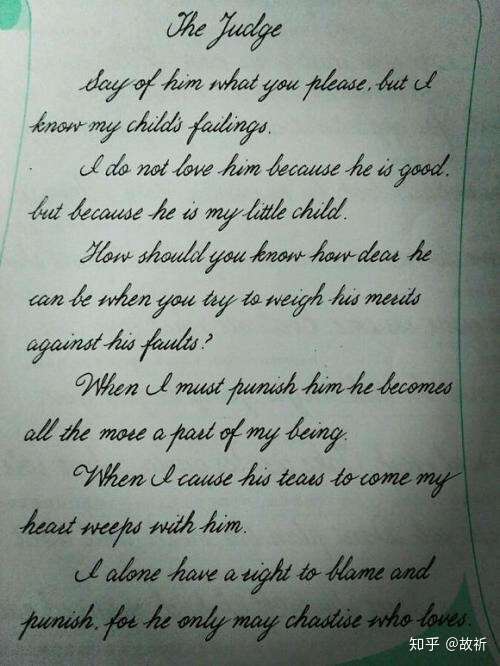 The Judge
Say of him what you please, but I
know my child's failings.
I do not love him because he is good,
but because he is my little child.
How should you know how dear he
can be when you try to weigh his merits
against his faults?
When I must punish him he becomes
all the more a part of my being.
When I cause his tears to come my
heart weeps with him.
I alone have a right to blame and
punish, for he only may chastise who loves.
知乎 @故祈